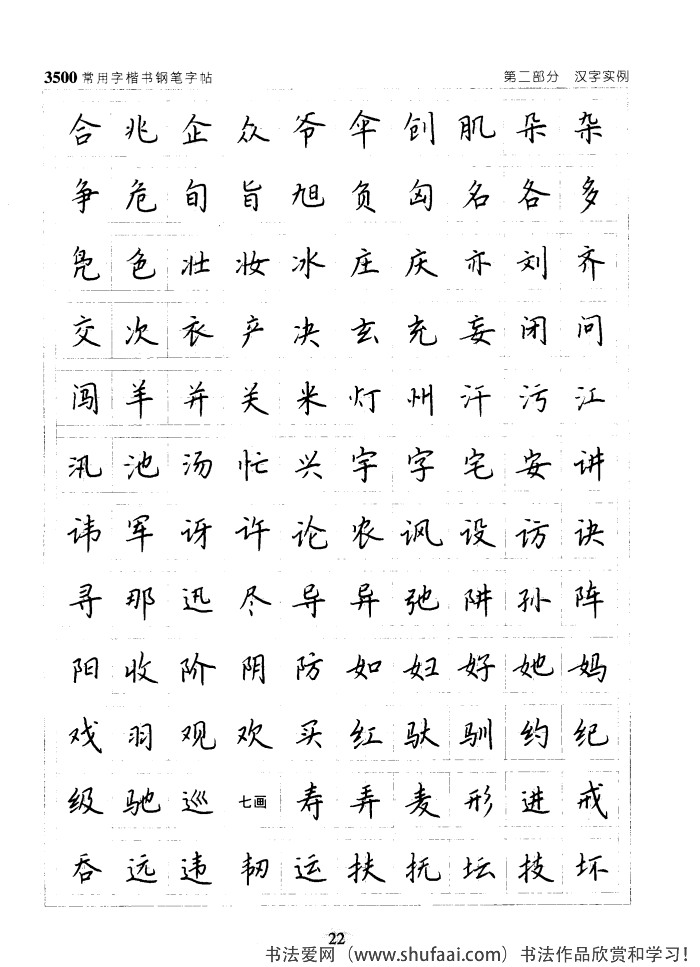 3500常用字楷书钢笔字帖 第二部分 汉字实例
合 兆 企 众 爷 伞 创 肌 朵 杂
争 危 旬 旨 旭 负 匈 名 各 多
凫 色 壮 妆 冰 庄 庆 亦 刘 齐
交 次 衣 产 决 玄 充 妄 闭 问
闯 羊 并 关 米 灯 州 汗 污 江
汛 池 汤 忙 兴 宇 字 宅 安 讲
讳 军 讶 许 论 农 讽 设 访 诀
寻 那 迅 尽 导 异 弛 阱 孙 阵
阳 收 阶 阴 防 如 妇 好 她 妈
戏 羽 观 欢 买 红 驮 驯 约 纪
级 驰 巡 七画 寿 弄 麦 形 进 戒
吞 远 违 韧 运 扶 抚 坛 技 坏
22
书法爱网（www.shufaai.com）书法作品欣赏和学习!